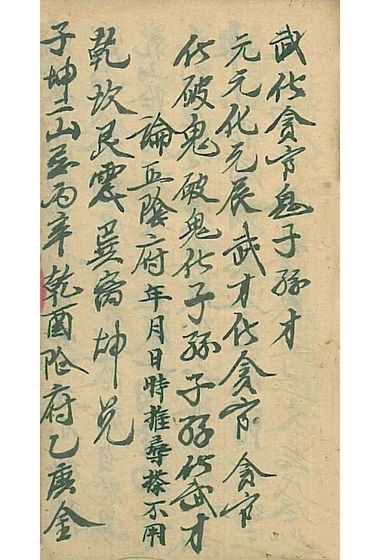 武化貪官鬼子孫才
元元化元辰武才化貪官貪官
化破鬼破鬼化子孫子孫化武才
論正陰府年月日時推尋搽不用
乾坎艮震巽离坤兑
子坤二山忌丙辛乾酉陰府乙庚金